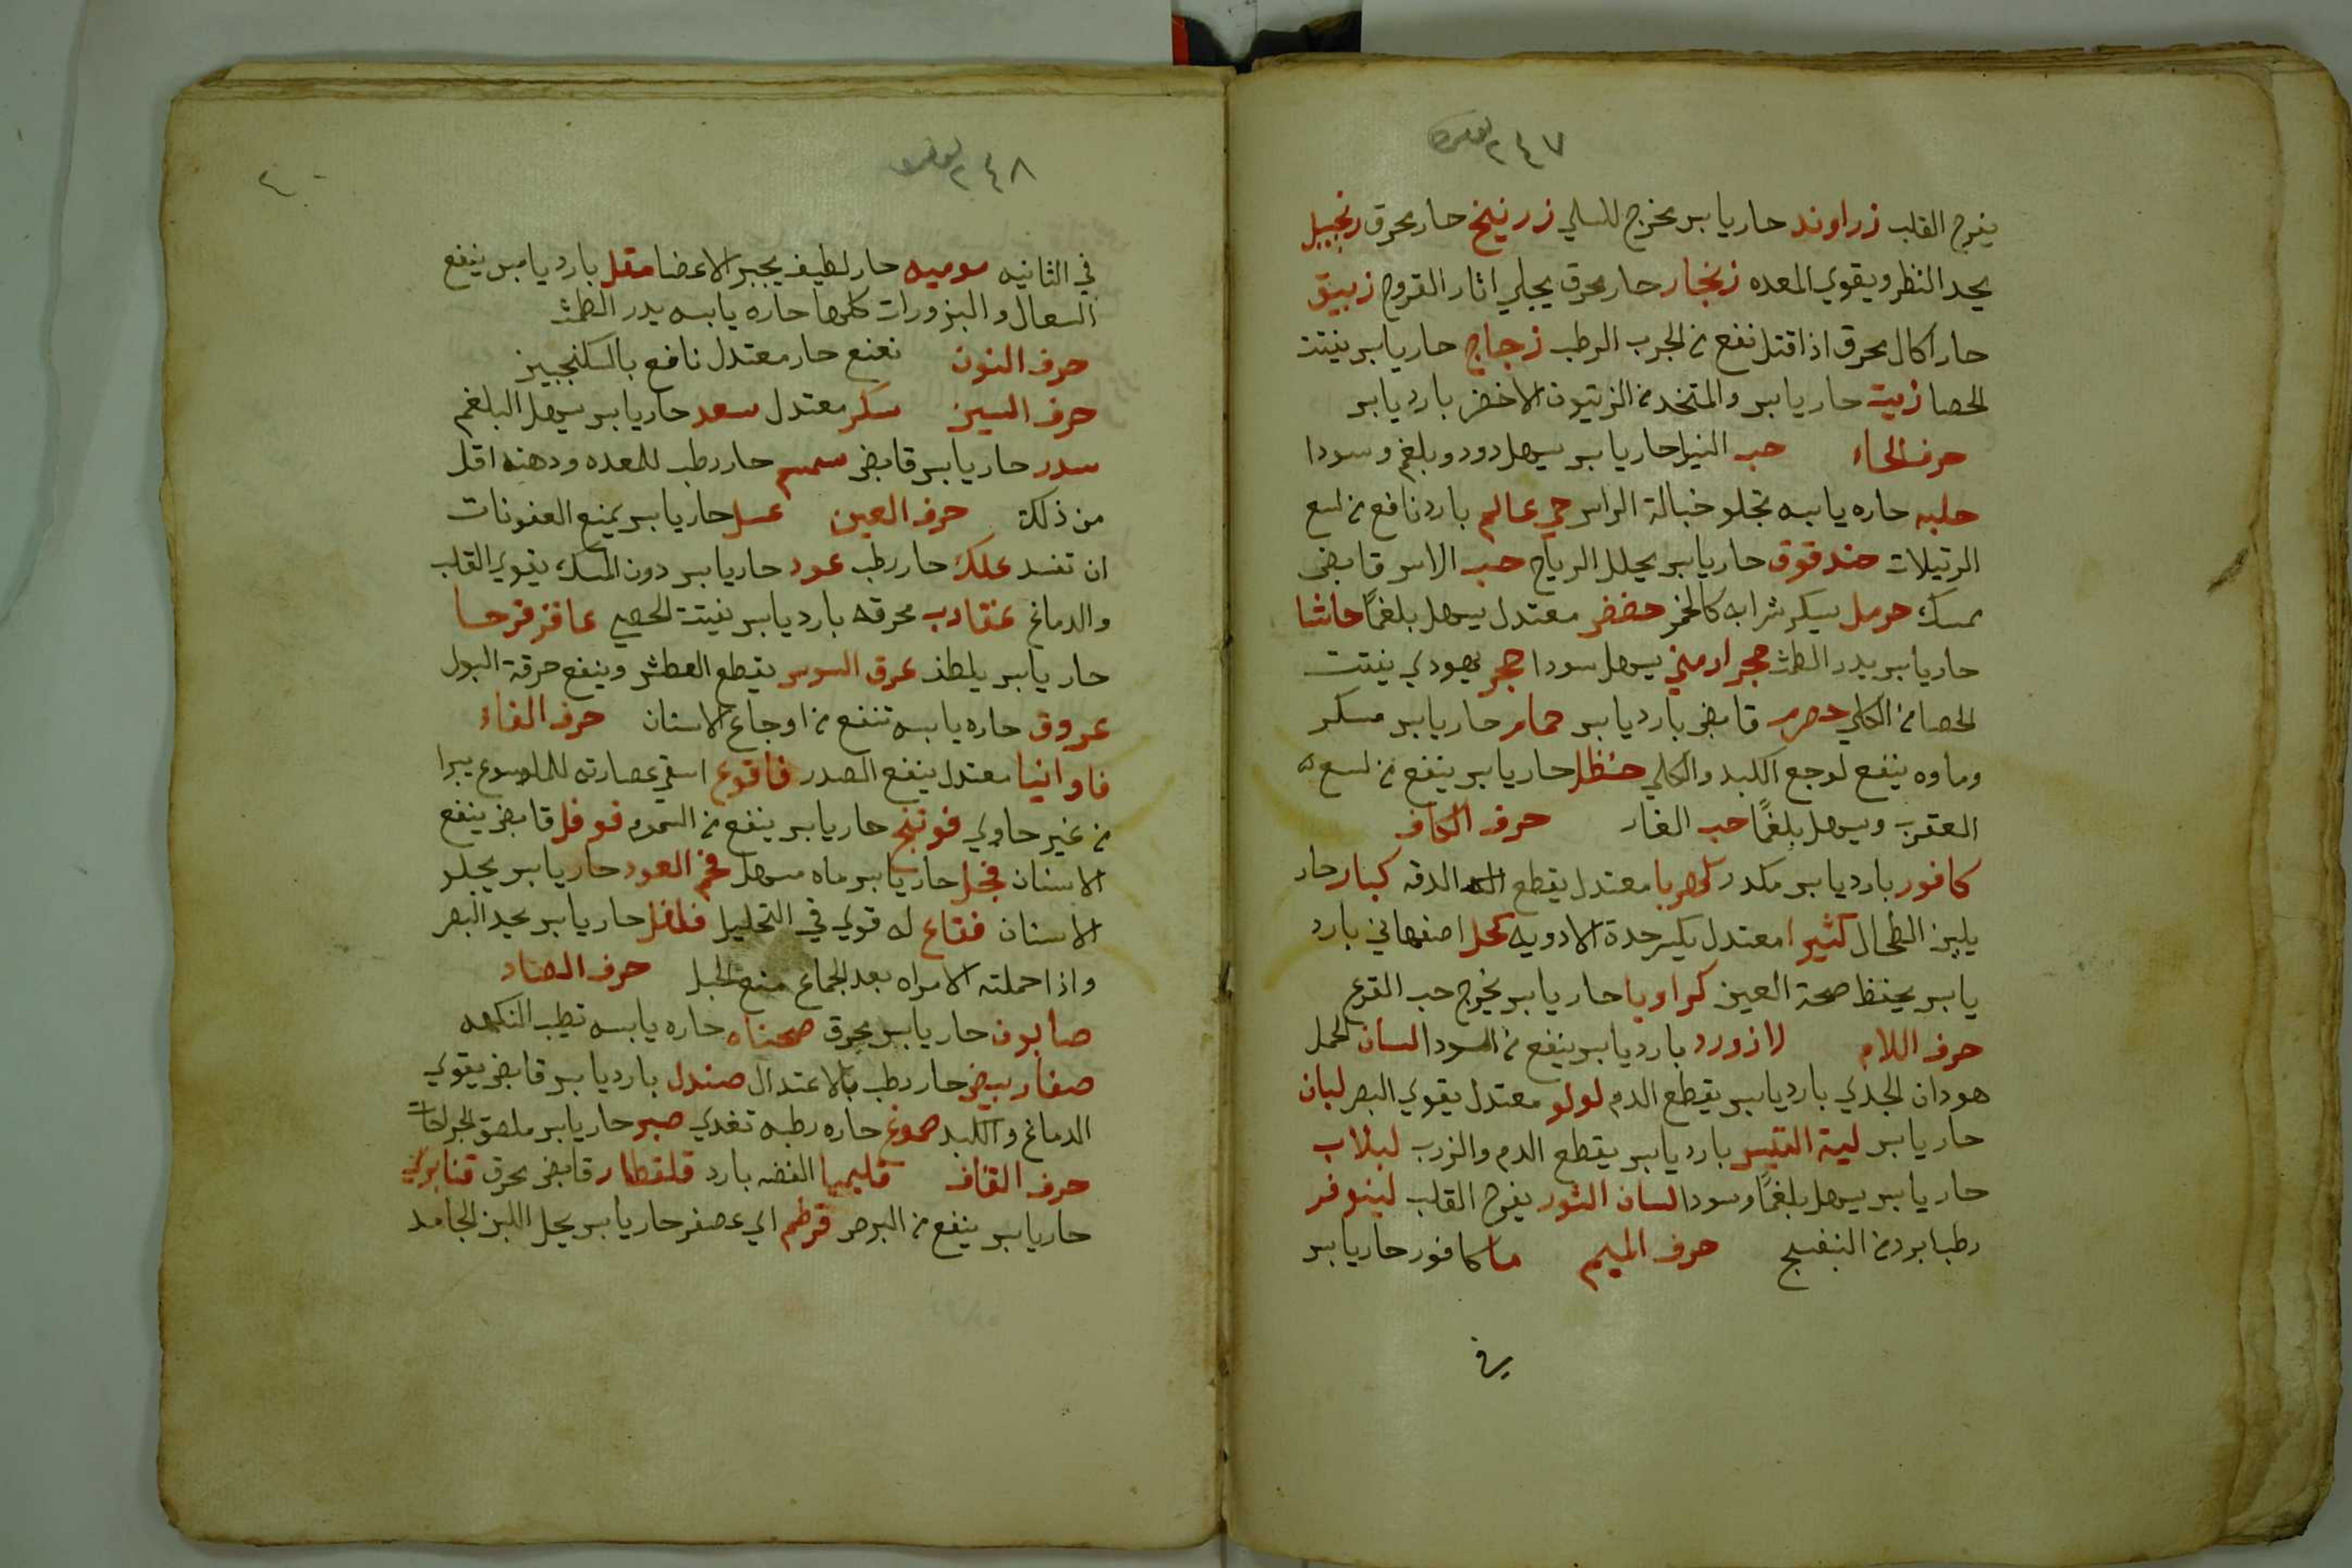 ٢٤٧
يفرح القلب زراوند حار يابس يخرج للسلي زرنيخ حار محرق زنجبيل
يحد النظر ويقوي المعده زنجار حار محرق يجلي اثار القروح زيبق
حار اكال محرق اذا قتل نفع من الجرب الرطب زجاج حار يابس يفتت
الحصا زيت حار يابس والمتخد من الزيتون الاخضر بارد يابس
حرف الحاء حب النيل حار يابس يسهل دود وبلغم وسودا
حلبه حاره يابسه تجلو خبالة الراس حي عالم بارد نافع من لسع
الرتيلات حندقوق حار يابس يحلل الرياح حب الاس قابض
يمسك حرمل يسكر شرابه كالخمر حضض معتدل يسهل بلغمًا حاشا
حار يابس يدر الطمث حجر ارمني يسهل سودا حجر يهودي يفتت
الحصا من الكلي حصرم قابض بارد يابس حمام حار يابس مسكر
وماوه ينفع لوجع الكبد والكلي حنظل حار يابس ينفع من لسعه
العقرب ويسهل بلغمًا حب الغار حرف الكاف
كافور بارد يابس مكدر كهربا معتدل يقطع الدقه كبار حار
يلين الطحال كثيرا معتدل يكسر حدة الادويه كحل اصفهاني بارد
يابس يحفظ صحة العين كراويا حار يابس يخرج حب القرع
حرف اللام لازورد بارد يابس ينفع من السودا لسان الحمل
هو دان الجدي بارد يابس يقطع الدم لولو معتدل يقوي البصر لبان
حار يابس لية التيس بارد يابس يقطع الدم والزرب لبلاب
حار يابس يسهل بلغمًا وسودا لسان الثور يفرح القلب لينوفر
رطب ابرد من البنفسج حرف الميم ما كافور حار يابس
في
٢٤٨
في الثانيه موميه حار لطيف يجبر الاعضا مقل بارد يابس ينفع
السعال والبزورات كلها حاره يابسه يدر الطمث
حرف النون نعنع حار معتدل نافع بالسكنجبين
حرف السين سكر معتدل سعد حار يابس يسهل البلغم
سدر حار يابس قابض سمسم حار رطب للمعده ودهنه اقل
من ذلك حرف العين عسل حار يابس يمنع العفونات
ان تفسد علك حار رطب عود حار يابس دون المسك يقوي القلب
والدماغ عقارب محرقه بارد يابس يفتت الحصي عاقر قرحا
حار يابس يلطف عرق السوس يقطع العطش وينفع حرقة البول
عروق حاره يابسه تنفع من اوجاع الاسنان حرف الفاء
فاوانيا معتدل ينفع الصدر فاقوع اسقي عصارته للملسوع يبرا
من غير حاوي فوتنج حار يابس ينفع من السموم فوفل قابض ينفع
الاسنان فجل حار يابس ماه مسهل فحم العود حار يابس يجلو
الاسنان فقاع له قوي في التحليل فلفل حار يابس يحد البصر
واذا حملته الامراه بعد الجماع منع الحبل حرف الصاد
صابون حار يابس يحرق صحناه حاره يابسه تطيب النكهه
صفار بيض حار رطب بالاعتدال صندل بارد يابس قابض يقوي
الدماغ والكبد صموغ حاره رطبه تغدي صبر حار يابس ملصق الجراحات
حرف القاف قليميا الفضه بارد قلقطار قابض يحرق قنابري
حار يابس ينفع من البرص قرطم اي عصفر حار يابس يحل اللبن الجامد